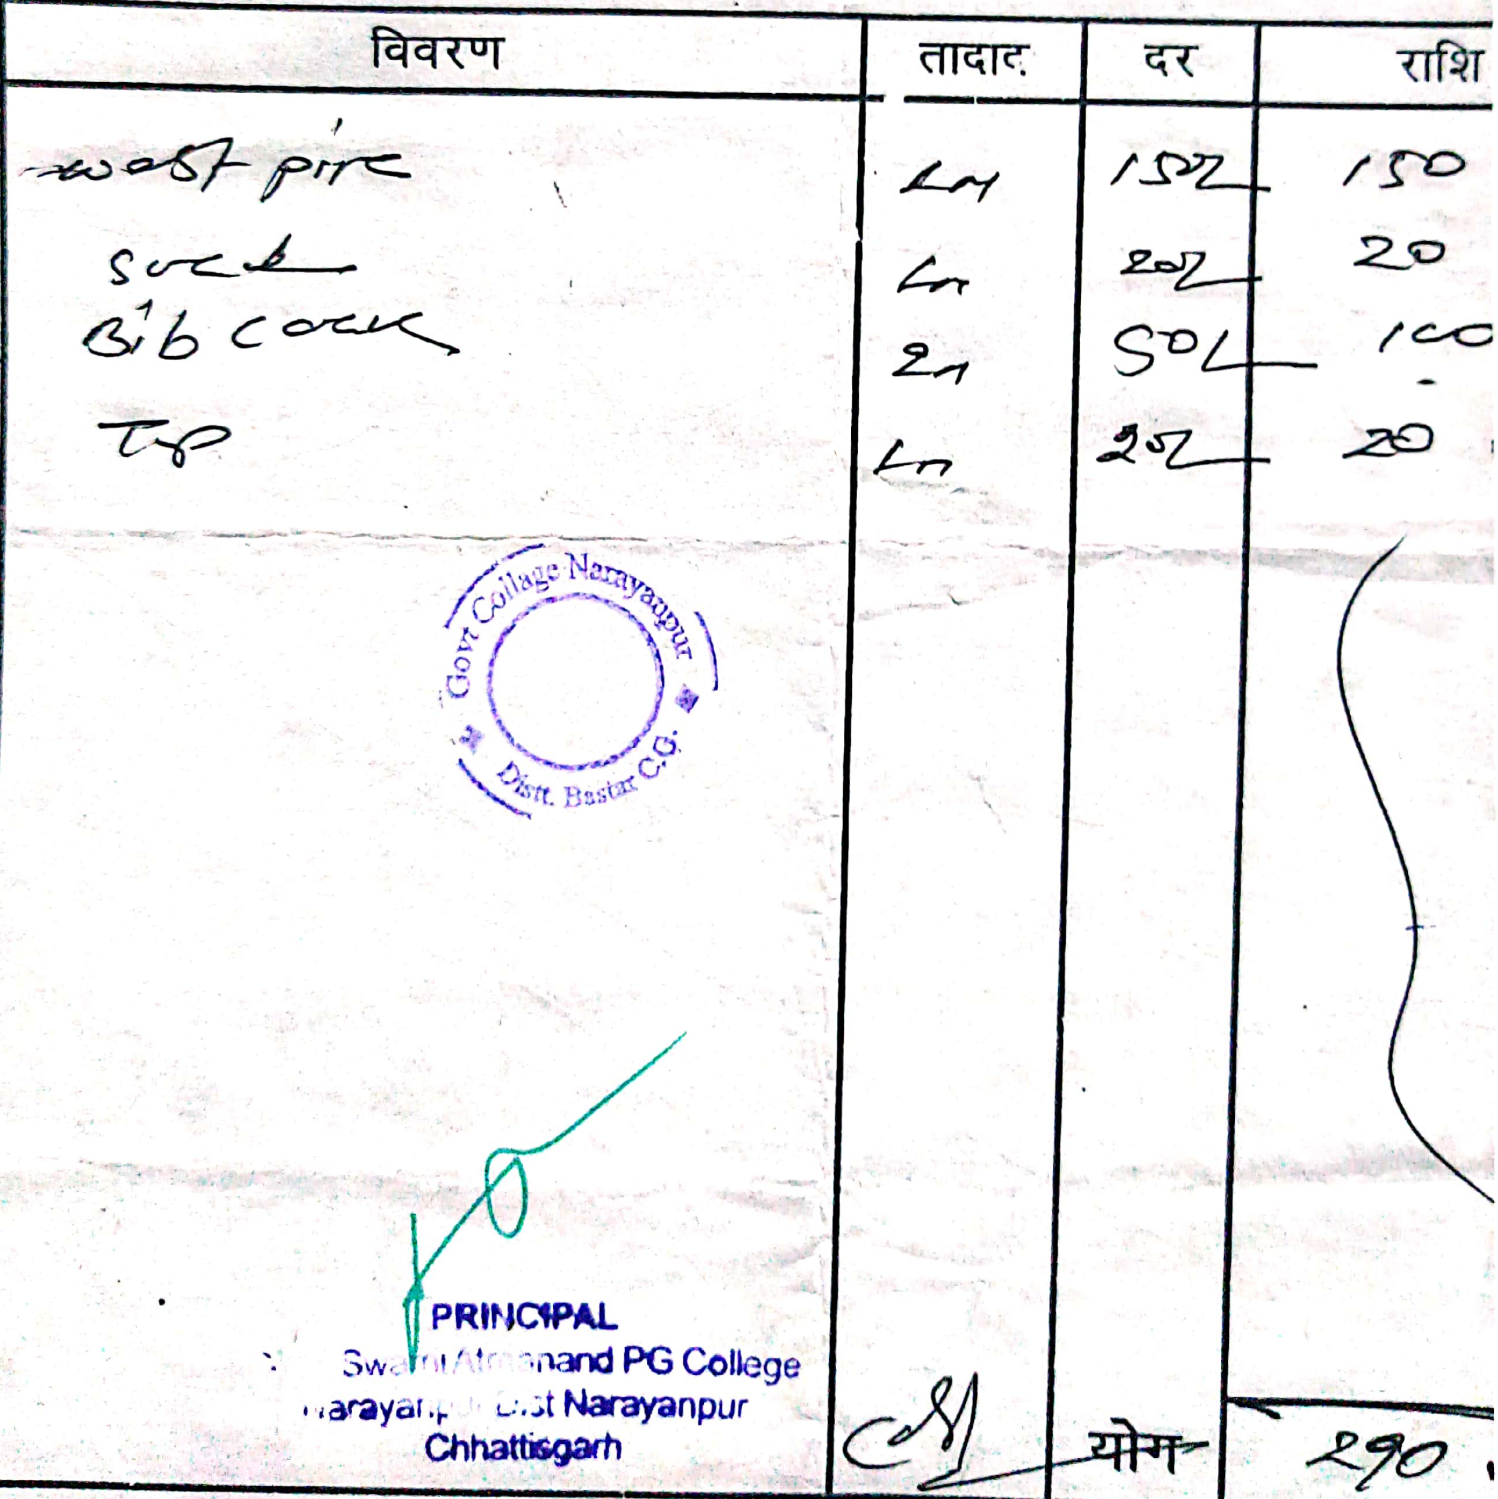 विवरण तादाद दर राशि
west pipe 1n 150/- 150
sock 1n 20/- 20
Bib cock 2n 50/- 100
Tap 1n 20/- 20
Govt Collage Narayanpur
Distt. Bastar C.G.
PRINCIPAL
Swami Atmanand PG College
Narayanpur Dist Narayanpur
Chhattisgarh
योग 290